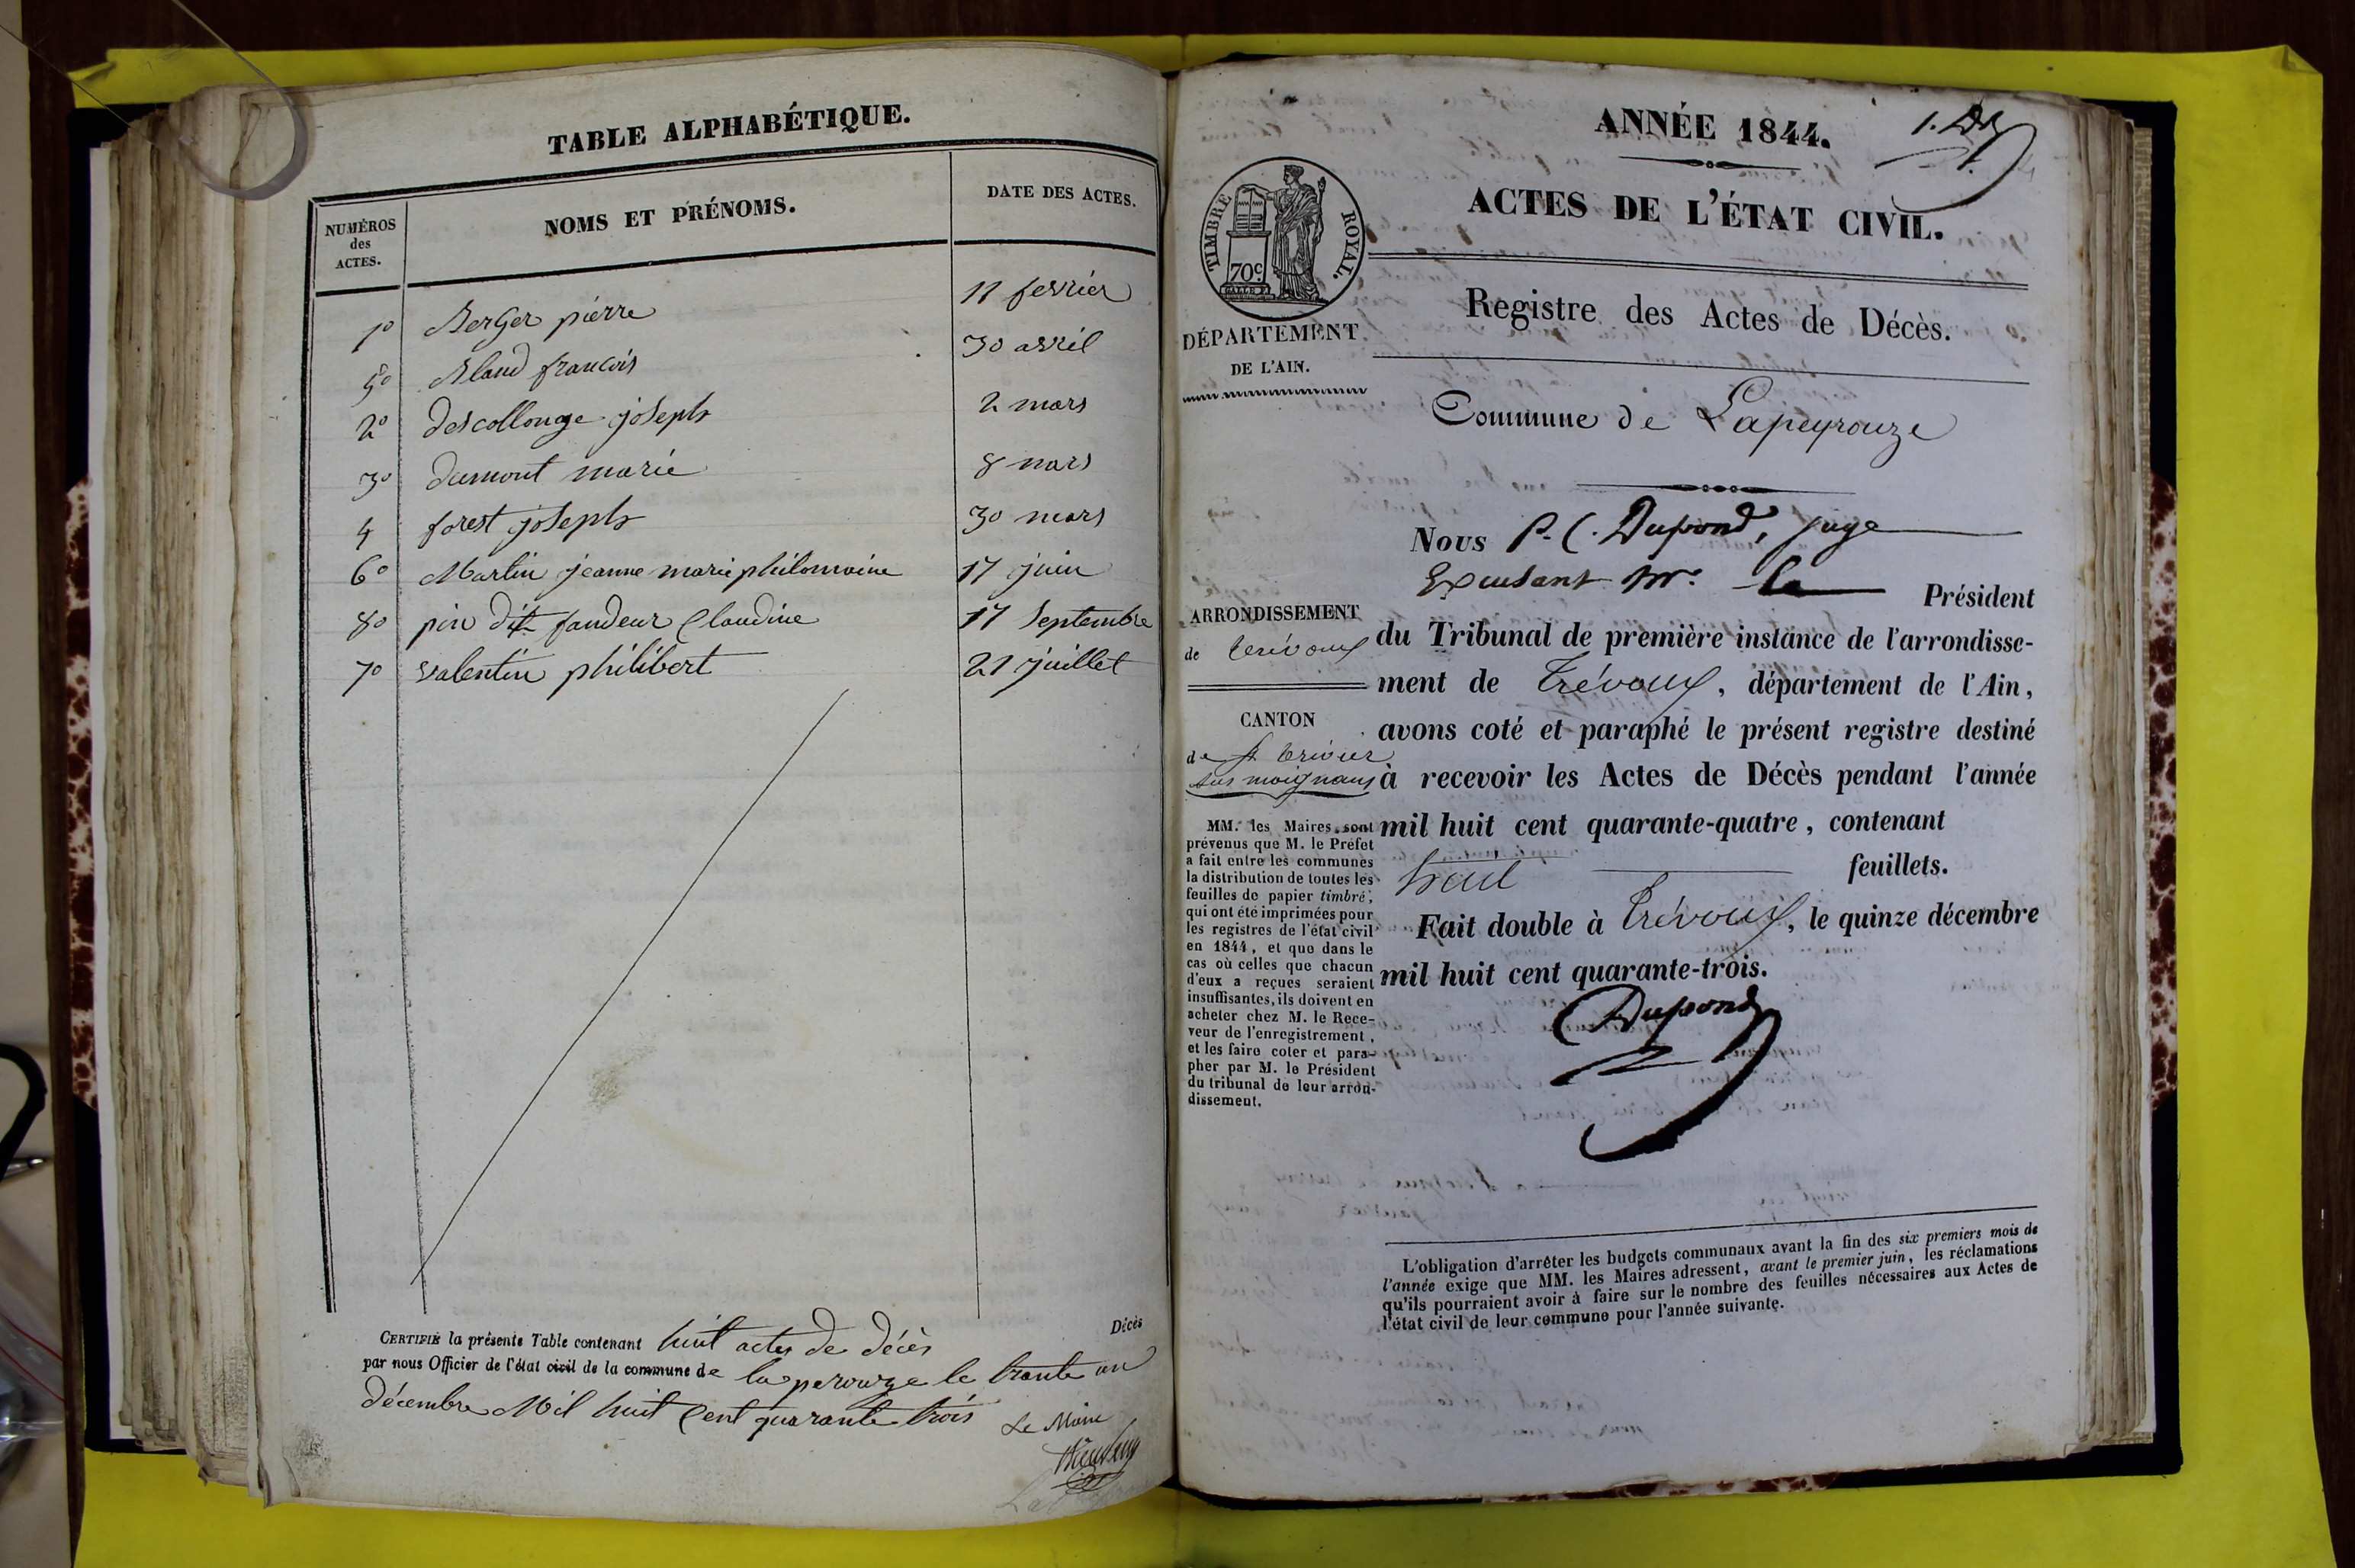 TABLE ALPHABÉTIQUE.
NUMÉROS
des
ACTES.
NOMS ET PRÉNOMS.
DATE DES ACTES.
1º Berger pierre 11 fevrier
5º Bland francois 30 avril
2º descollonge joseph 2 mars
3º dumont marie 8 mars
4 forest joseph 30 mars
6º Martin jeanne marie philomoine 17 juin
8º pin dit fandeur Claudine 17 Septembre
7º valentin philibert 21 juillet
Décès
CERTIFIÉ la présente Table contenant huit actes de décès
par nous Officier de l'état civil de la commune de la perouze le trante un
décembre Mil huit Cent quarante trois
Le Maire
ANNÉE 1844.
1.
TIMBRE ROYAL.
70c
ACTES DE L'ÉTAT CIVIL.
Registre des Actes de Décès.
DÉPARTEMENT
DE L'AIN.
Commune de Lapeyrouze
Nous P. C. Dupond, juge
Excusant Mr. le Président
ARRONDISSEMENT
de Trévoux
du Tribunal de première instance de l'arrondisse-
ment de Trévoux, département de l'Ain,
CANTON
de St trivier
sur moignans
avons coté et paraphé le présent registre destiné
à recevoir les Actes de Décès pendant l'année
mil huit cent quarante-quatre, contenant
huit feuillets.
Fait double à Trévoux, le quinze décembre
mil huit cent quarante-trois.
Dupond
MM. les Maires sont
prévenus que M. le Préfet
a fait entre les communes
la distribution de toutes les
feuilles de papier timbré,
qui ont été imprimées pour
les registres de l'état civil
en 1844, et que dans le
cas où celles que chacun
d'eux a reçues seraient
insuffisantes, ils doivent en
acheter chez M. le Rece-
veur de l'enregistrement,
et les faire coter et para-
pher par M. le Président
du tribunal de leur arron-
dissement.
L'obligation d'arrêter les budgets communaux avant la fin des six premiers mois de
l'année exige que MM. les Maires adressent, avant le premier juin, les réclamations
qu'ils pourraient avoir à faire sur le nombre des feuilles nécessaires aux Actes de
l'état civil de leur commune pour l'année suivante.